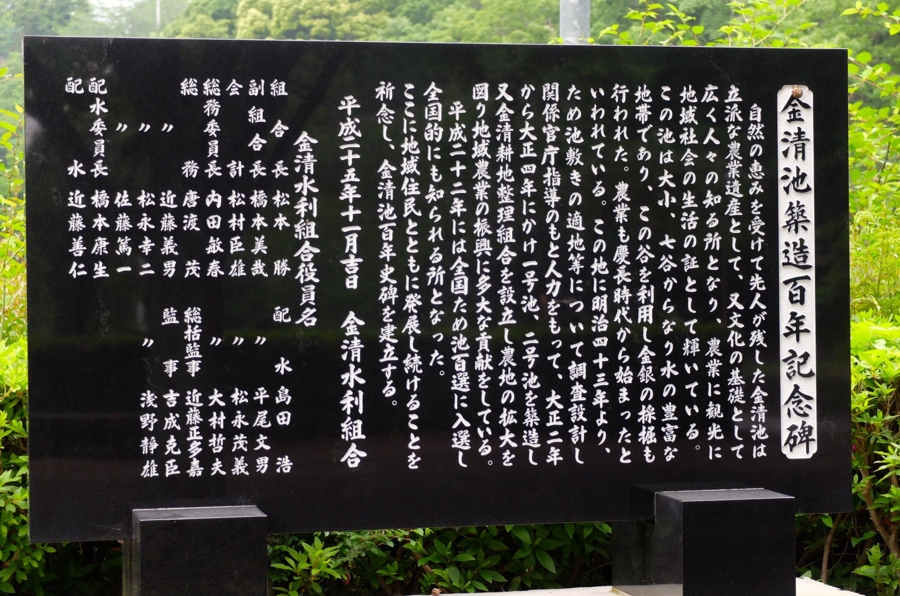 金清池築造百年記念碑
自然の恵みを受けて先人が残した金清池は
立派な農業遺産として、又文化の基礎として
広く人々の知る所となり、農業に観光に
地域社会の生活の証として輝いている。
この池は大小、七谷からなり水の豊富な
地帯であり、この谷を利用し金銀の採掘も
行われた。農業も慶長時代から始まったと
いわれている。この地に明治四十三年より、
ため池敷きの適地等について調査設計し
関係官庁指導のもと人力をもって、大正二年
から大正四年にかけ一号池、二号池を築造し
又金清耕地整理組合を設立し農地の拡大を
図り地域農業の振興に多大な貢献をしている。
平成二十二年には全国ため池百選に入選し
全国的にも知られる所となった。
ここに地域住民とともに発展し続けることを
祈念し、金清池百年史碑を建立する。
平成二十五年十一月吉日 金清水利組合
金清水利組合役員名
組合長 松本勝 配水 島田浩
副組合長 橋本美哉 〃 平尾文男
会計 松村臣雄 〃 松永茂義
総務委員長 内田敏春 〃 大村哲夫
総務 唐渡茂 総括監事 近藤正多嘉
〃 近藤義男 監事 吉成克臣
〃 松永幸二 〃 浅野静雄
〃 佐藤篤一
配水委員長 橋本康生
配水 近藤善仁